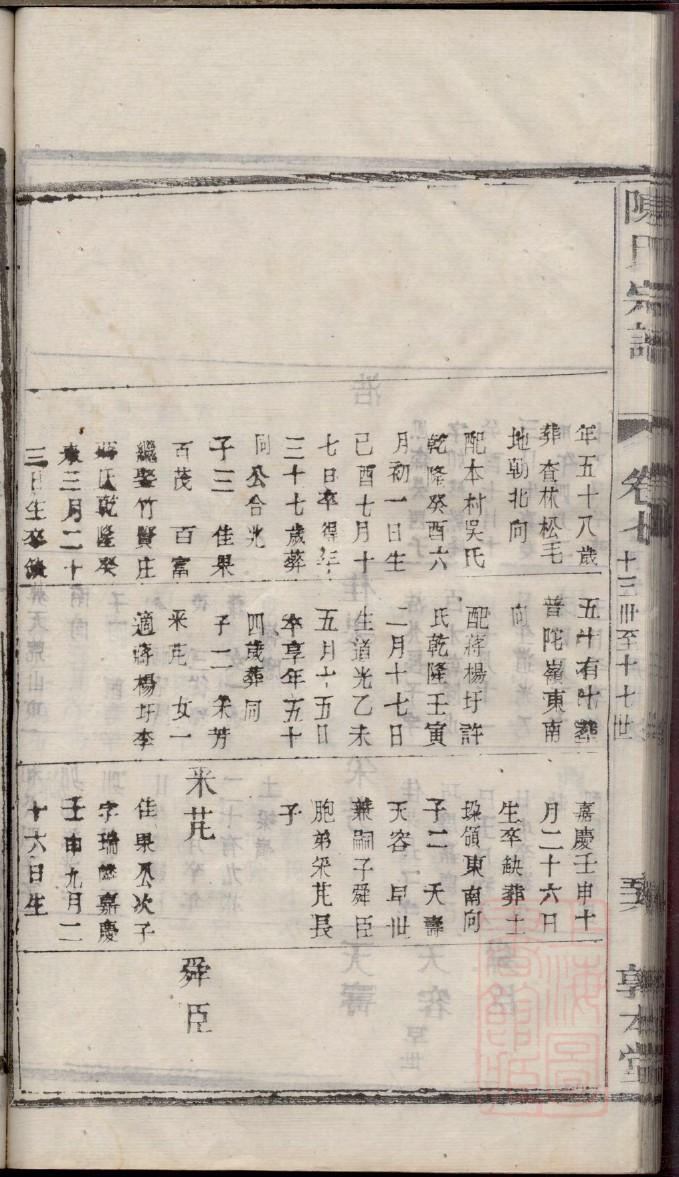 陳氏宗譜
卷七
十三世至十七世
敦本堂
年五十八歲
葬查林松毛
地朝北向
配本村吳氏
乾隆癸酉六
月初一日生
己酉七月十
七日卒得年
三十七歲葬
同公合兆
子三 佳果
百茂 百富
繼娶竹賢庄
蔣氏乾隆癸
未三月二十
三日生卒缺
五十有 葬
普陀嶺東南
向
配蔣楊圩許
氏乾隆壬寅
二月十七日
生道光乙未
五月十五日
卒享年五十
四歲葬同
子二 采芳
采芘 女一
適蔣楊圩李
嘉慶壬申十
月二十六日
生卒缺葬土
垛嶺東南向
子二 天壽
天容早世
兼嗣子舜臣
胞弟采芘長
子
采芘
佳果公次子
字瑞 嘉慶
壬申九月二
十六日生
舜臣